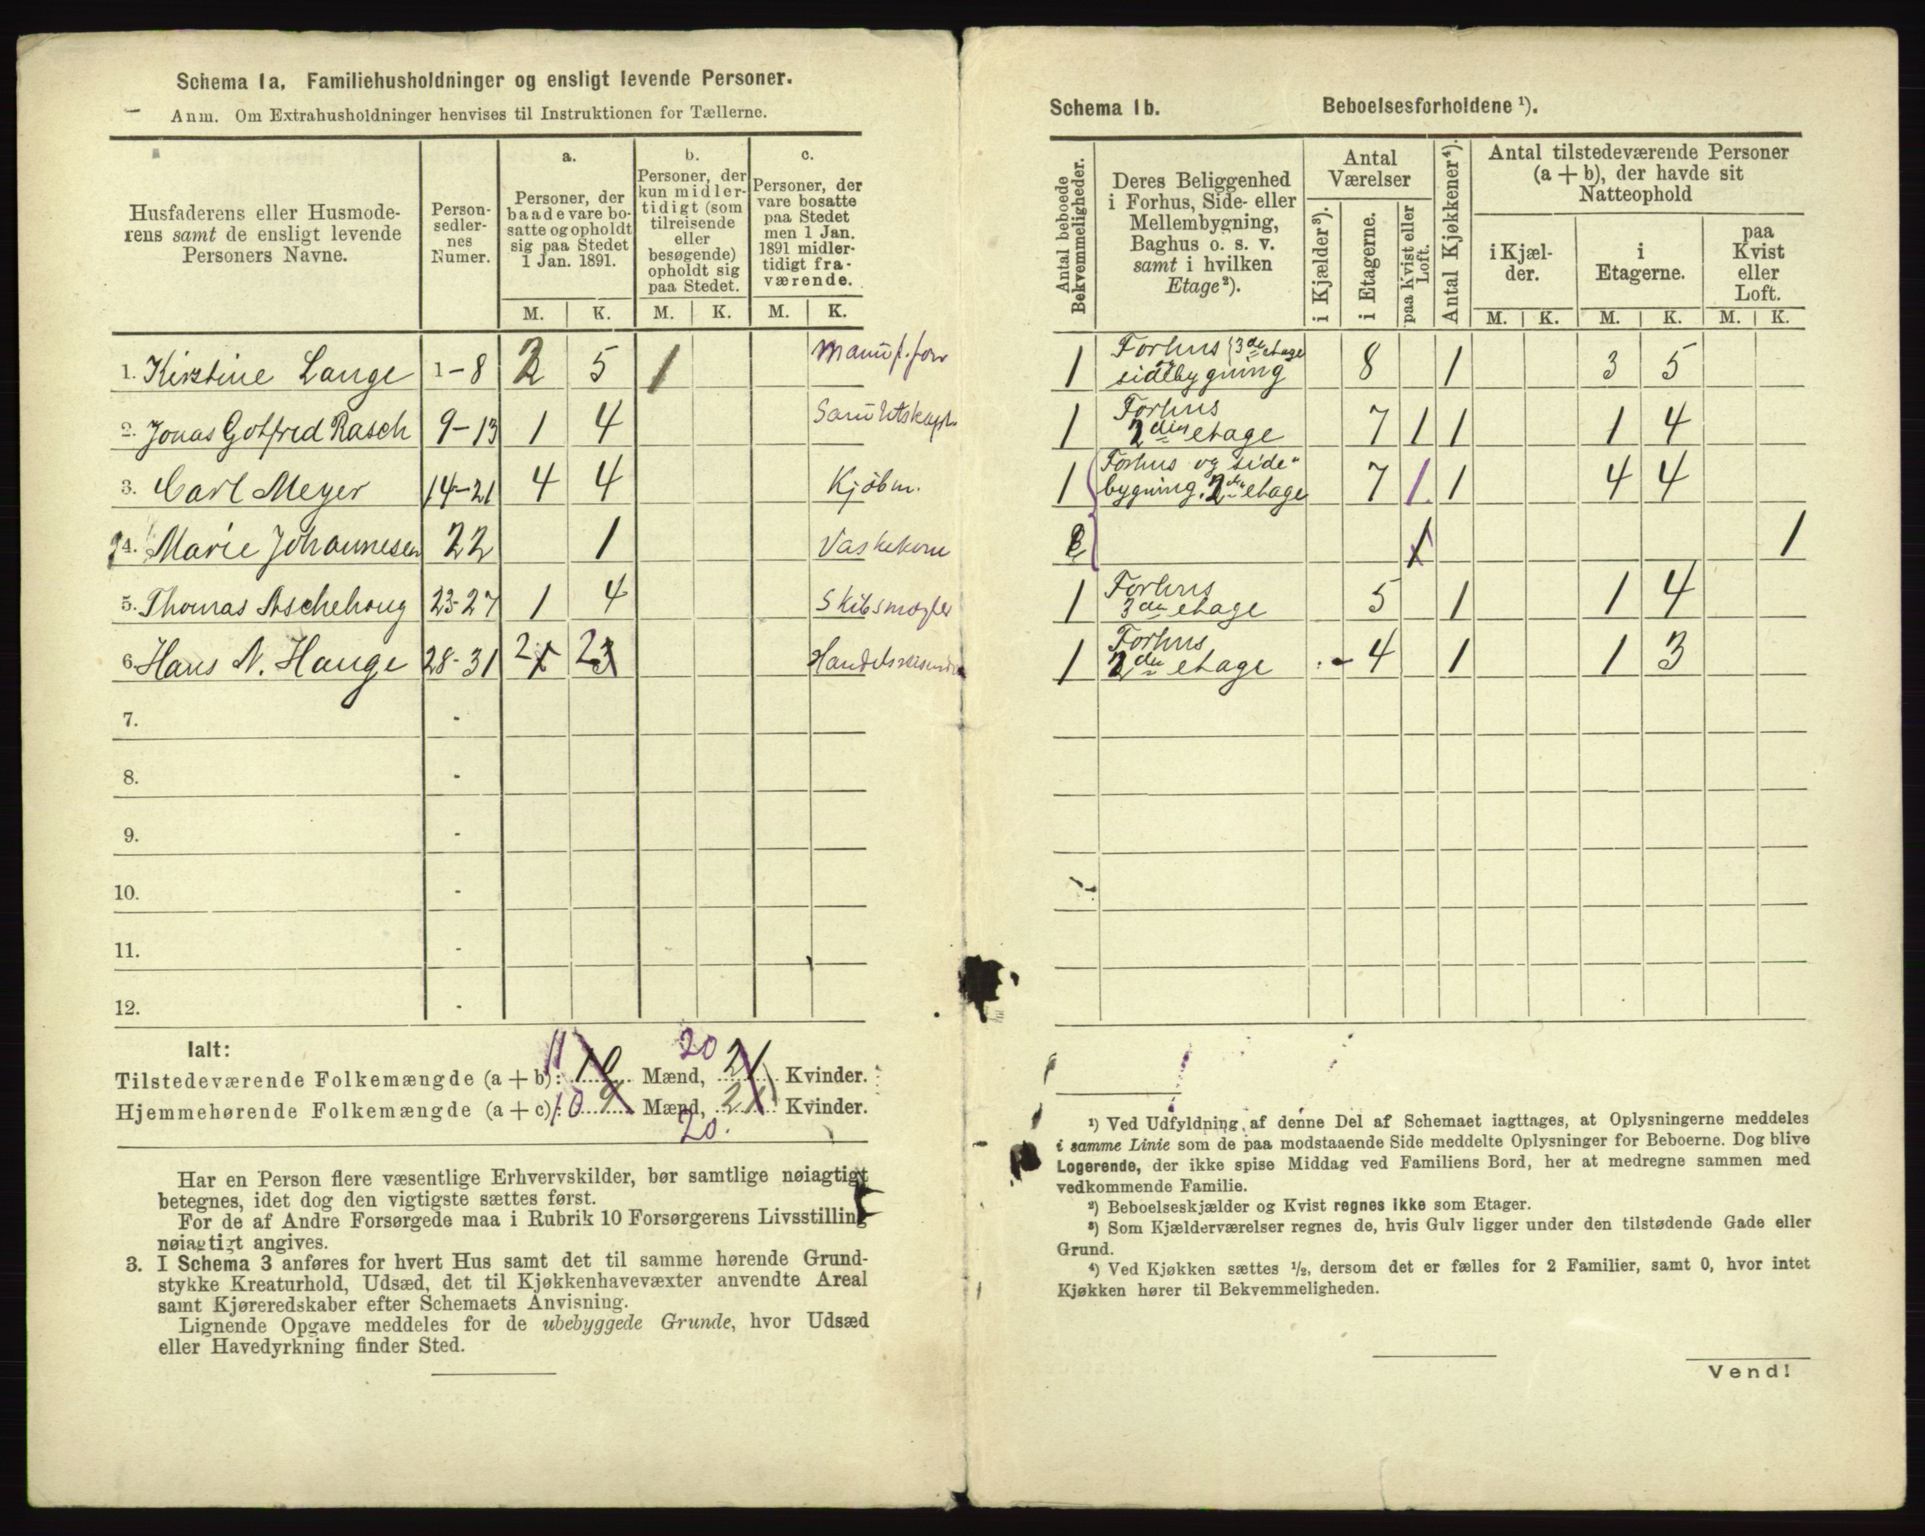 Schema 1a, Familiehusholdninger og ensligt levende Personer.
Anm. Om Extrahusholdninger henvises til Instruktionen for Tællerne.
Husfaderens eller Husmoderens samt de ensligt levende Personers Navne.
Personsedlernes Numer.
a. Personer, der baade vare bosatte og opholdt sig paa Stedet 1 Jan. 1891.
b. Personer, der kun midlertidigt (som tilreisende eller besøgende) opholdt sig paa Stedet.
c. Personer, der vare bosatte paa Stedet men 1 Jan. 1891 midlertidigt fraværende.
M. K. M. K. M. K.
1. Kirstine Lange 1-8 2 5 1
2. Jonas Gotfred Rasch 9-13 1 4
3. Carl Meyer 14-21 4 4 Kjøbm.
4. Marie Johannesen 22 1 Vaskekone
5. Thomas Aschehoug 23-27 1 4 Skibsmægler
6. Hans N. Hauge 28-31 2 1 2 3
7. -
8. -
9. -
10. -
11. -
12. -
Ialt:
Tilstedeværende Folkemængde (a + b): 11 10 Mænd, 20 21 Kvinder.
Hjemmehørende Folkemængde (a + c): 10 9 Mænd, 21 Kvinder.
20.
Har en Person flere væsentlige Erhvervskilder, bør samtlige nøiagtigt
betegnes, idet dog den vigtigste sættes først.
For de af Andre Forsørgede maa i Rubrik 10 Forsørgerens Livsstilling
nøiagtigt angives.
3. I Schema 3 anføres for hvert Hus samt det til samme hørende Grund-
stykke Kreaturhold, Udsæd, det til Kjøkkenhavevæxter anvendte Areal
samt Kjøreredskaber efter Schemaets Anvisning.
Lignende Opgave meddeles for de ubebyggede Grunde, hvor Udsæd
eller Havedyrkning finder Sted.
Schema 1b. Beboelsesforholdene ¹).
Antal beboede Bekvemmeligheder.
Deres Beliggenhed i Forhus, Side- eller Mellembygning, Baghus o. s. v. samt i hvilken Etage²).
Antal Værelser
i Kjælder³).
i Etagerne.
paa Kvist eller Loft.
Antal Kjøkkener⁴).
Antal tilstedeværende Personer (a + b), der havde sit Natteophold
i Kjælder.
i Etagerne.
paa Kvist eller Loft.
M. K. M. K. M. K.
1 Forhus 3de etage
sidebygning 8 1 3 5
1 Forhus
2den etage 7 1 1 1 4
1 Forhus og side-
bygning. 2den etage 7 1 1 4 4
1 1
1 Forhus
3den etage 5 1 1 4
1 Forhus
2den etage 4 1 1 3
¹) Ved Udfyldning af denne Del af Schemaet iagttages, at Oplysningerne meddeles
i samme Linie som de paa modstaaende Side meddelte Oplysninger for Beboerne. Dog blive
Logerende, der ikke spise Middag ved Familiens Bord, her at medregne sammen med
vedkommende Familie.
²) Beboelseskjælder og Kvist regnes ikke som Etager.
³) Som Kjælderværelser regnes de, hvis Gulv ligger under den tilstødende Gade eller
Grund.
⁴) Ved Kjøkken sættes ½, dersom det er fælles for 2 Familier, samt 0, hvor intet
Kjøkken hører til Bekvemmeligheden.
Vend!